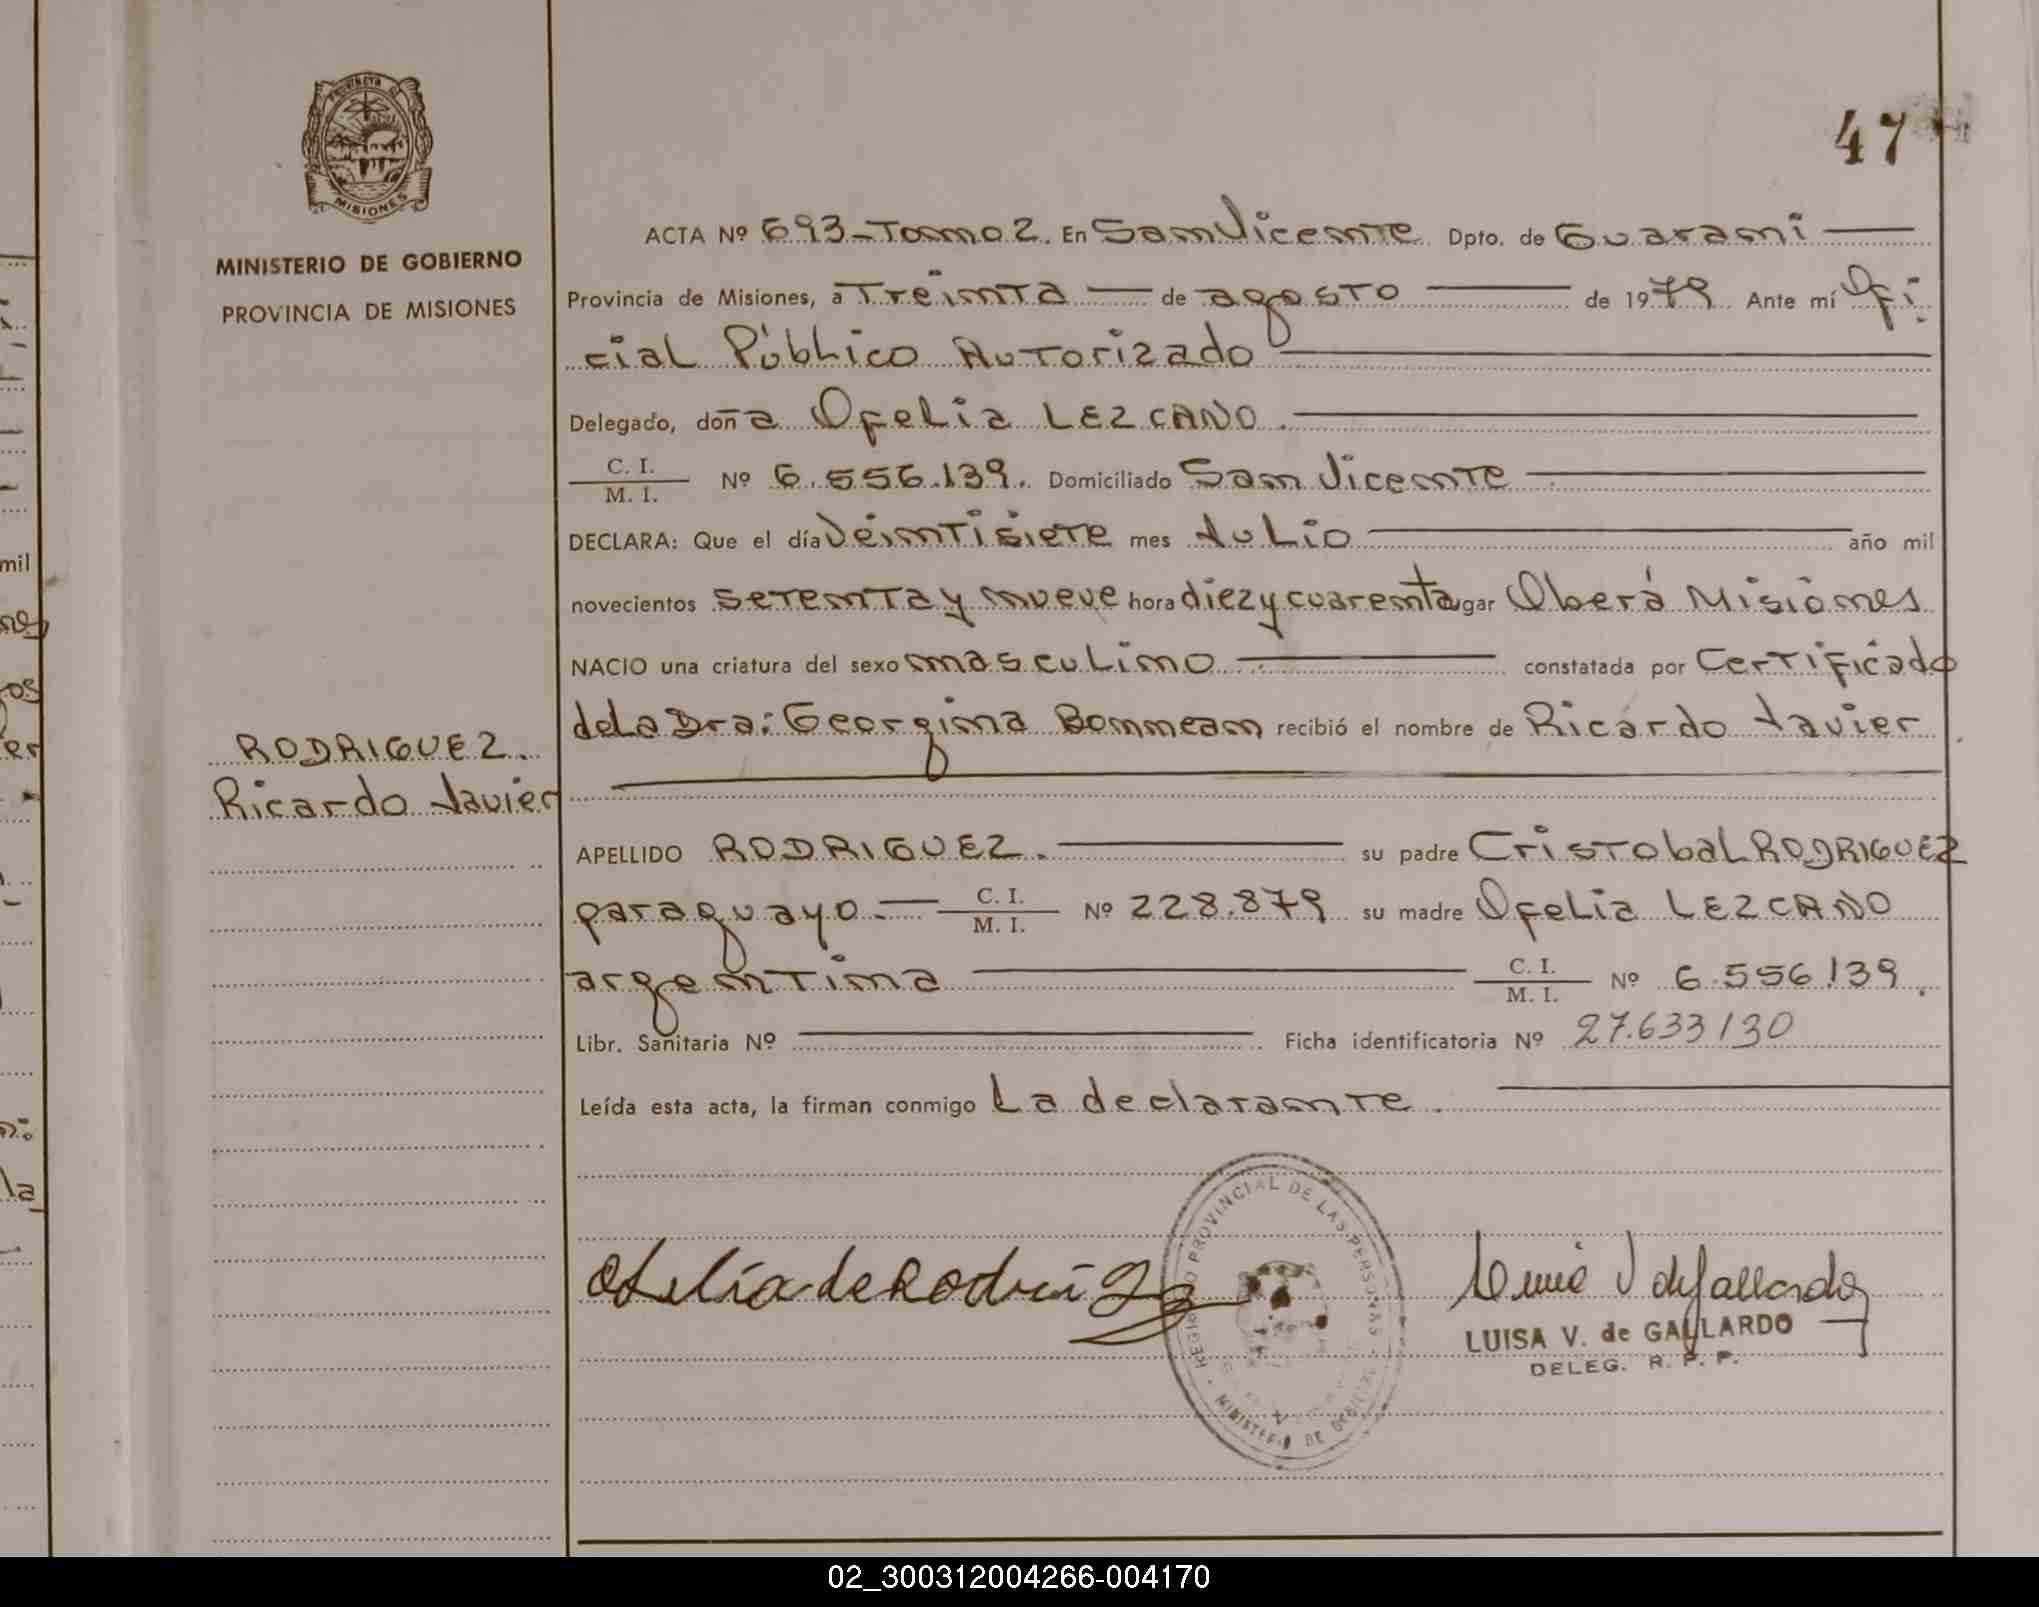 PROVINCIA DE
MISIONES
MINISTERIO DE GOBIERNO
PROVINCIA DE MISIONES
47
ACTA Nº 693-Tomo 2. En San Vicente Dpto. de Guarani
Provincia de Misiones, a Treinta de agosto de 1979 Ante mí Ofi
cial Público Autorizado
Delegado, doña Ofelia LEZCANO.
C. I.
M. I. Nº 6.556.139. Domiciliado San Vicente
DECLARA: Que el día Veintisiete mes Julio año mil
novecientos setenta y nueve hora diez y cuarenta gar Oberá Misiones
NACIO una criatura del sexo masculino constatada por Certificado
de La Dra: Georgina Bonnean recibió el nombre de Ricardo Javier
RODRIGUEZ.
Ricardo Javier
APELLIDO RODRIGUEZ. su padre Cristobal RODRIGUEZ
paraguayo.- C. I.
M. I. Nº 228.879 su madre Ofelia LEZCANO
argentina C. I.
M. I. Nº 6.556.139.
Libr. Sanitaria Nº Ficha identificatoria Nº 27.633130
Leída esta acta, la firman conmigo La declarante.
Ofelia de Rodriguez
REGISTRO PROVINCIAL DE LAS PERSONAS
MINISTERIO DE GOBIERNO
V de Gallardo
LUISA V. de GALLARDO
DELEG. R. P. P.
mil
la
02_300312004266-004170